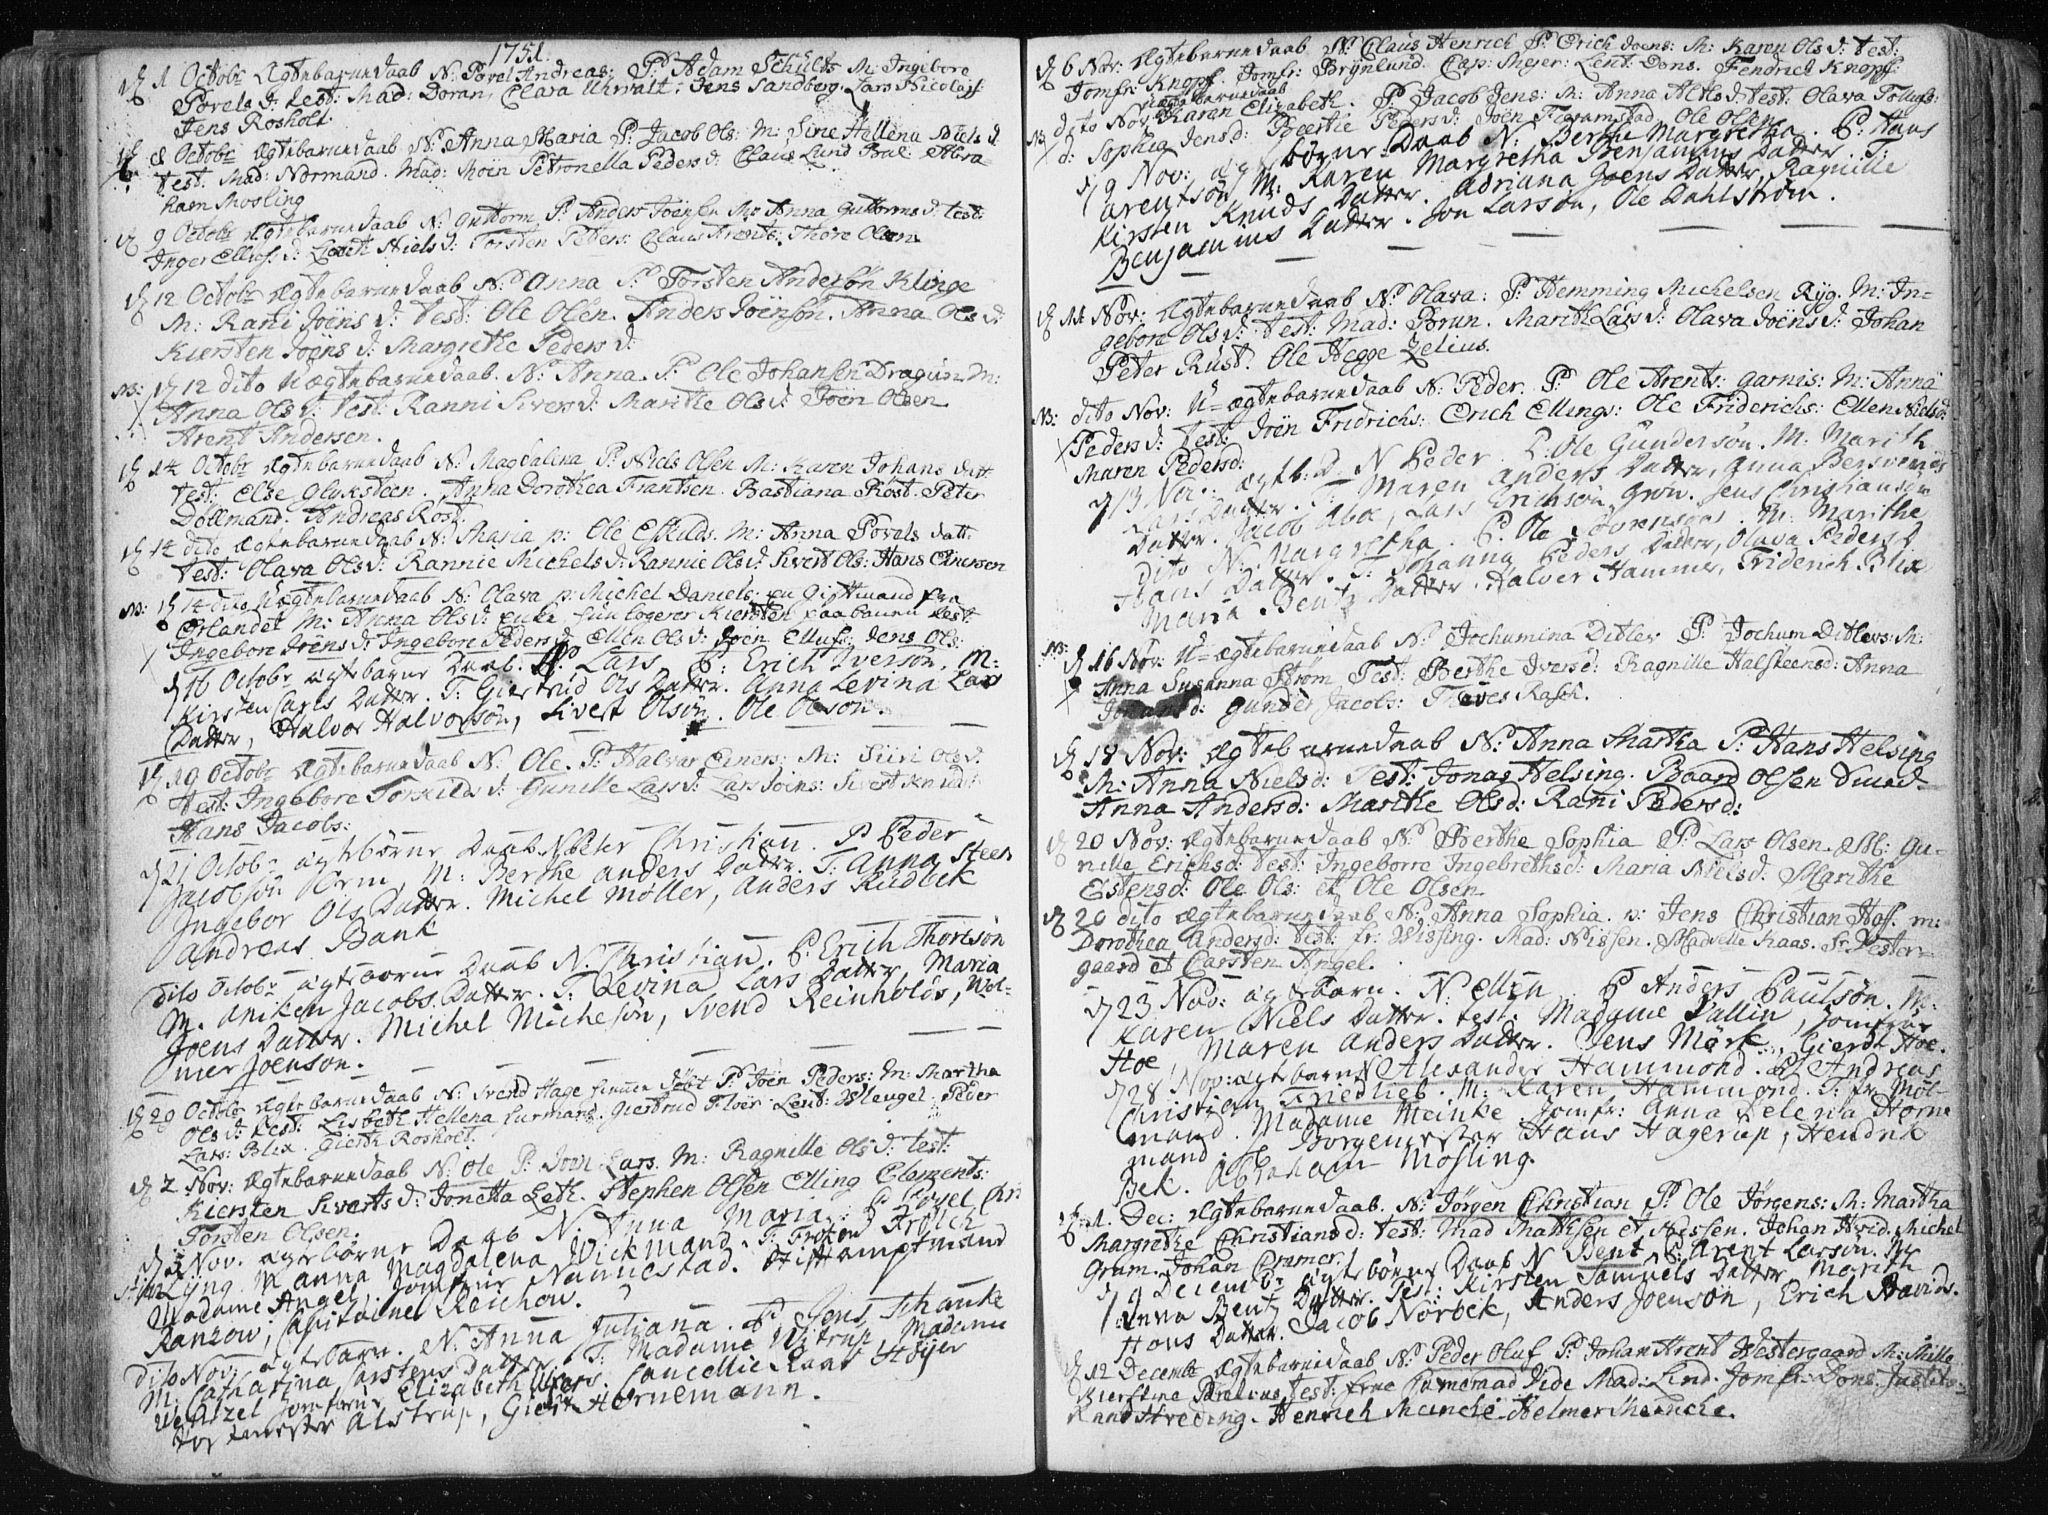 1751.
d 1 Octobr Ægtebarnedaab N: Povel Andreas: P: Adam Schults M: Ingebore
Povels d: test: Mad: Doran, Clara Uhrvalt: Jens Sandberg. Lars Nicolais:
Jens Rosholt.
d 8 Octobr Ægtebarnedaab N: Anna Maria P: Jacob Ols: M: Sine Hellena Niels d
test: Mad: Normand. Mad: Moën Petronella Peders d: Claus Lund Abra
ham Mosling
d 9 Octobr Ægtebarnedaab N: Guttorm P: Anders Joënsen M: Anna Guttorms d: test:
Inger Ellefs: d: Lisbeth Niels d: Torsten Peders: Claus Arents: Thore Olsen
d 12 Octobr Ægtebarnedaab N: Anna P: Torsten Andersøn Klinge
M: Rani Joëns d: test: Ole Olsen. Anders Joënsøn. Anna Ols d:
Kiersten Joëns d: Margrethe Peders d
NB: d 12 dito Uægtebarnedaab. N: Anna. P: Ole Johansen Dragun M:
Anna Ols d: test: Ranni Sivers d: Marithe Ols d: Joen Olsen
Arent Andersen.
d 14 Octobr Ægtebarnedaab N: Magdalena P: Niels Olsen M: Karen Johans datt
test: Else Oluksteen. Anna Dorothea Frantsen. Bastiana Röst. Peter
Dollmand. Andreas Rost.
d 14 dito Ægtebarnedaab N: Maria p: Ole Eskilds. M: Anna Povels datt.
test: Olava Ols d: Rannie Michels d: Rannie Ols d: Sivert Ols: Hans Einersen
NB: d 14 dito Uægtebarnedaab N: Olava p: Michel Daniels: en Giftmand fra
Ørlandet M: Anna Ols d: enke hun logerer Kiersten test
Ingebore Joëns d: Ingebore Peders d: Ellen Ols d: Joen Ellefs: Jens Ols:
d 16 Octobr ægtebarne Daab. N: Lars, P: Erich Iversøn, M:
Kirsten Larls Datter. T: Giertrud Ols Datter. Anna Levina Lars
Datter, Halvor Halvorsøn, Sivert Olson. Ole Olsson.
d 19 Octobr Ægtebarnedaab N: Ole. P: Halvar Einers: M: Siiri Ols d:
test: Ingebore Torkilds d: Gunille Lars d: Lars Joëns: Sivert Knuds:
Hans Jacobs:
d 21 Octobr ægtebørne Daab N: Peter Christian. P Peder
Jacobsøn Orm M: Berthe anders Datter. T: Anna Steen
Ingebor Ols Datter. Michel Møller, Anders Rudbek
andreas Bank
dito Octobr ægtebørne Daab N: Christian. P. Erich Thorsøn
M. aniken Jacobs Datter. T: Levina Lars Datter, Maria
Joens Datter. Michel Michesøn, Svend Reinholds, Wol-
mer Joenson.
d 29 Octobr Ægtebarnedaab N: Svend Hage P: Joën Peders: M: Martha
Ols d: test: Lisbeth Hellena Lurmand. Giertrud Floër. Lent: Wlengel. Peder
Lars: Blix. Gierth Rosholt.
d 2 Nov: Ægtebarnedaab N: Ole P: Joën Lars. M: Ragnille Ols d: test:
Kiersten Siverts d: Jonetta Leth. Stephen Olsen Elling Clements:
Torsten Olsen.
Nov. ægtebørne Daab N: Anna Maria. P Povel Chri
stian Lyng. M anna Magdalena Wickmand. T: Frøken Frölich
Madame Angel, Jomfrue Nannestad. Stiftamptmand
Ranzow, Capitainel Reichow.
dito Nov: ægtebarn. N: Anna Juliana. P Jens Schanke
M. Catharina Carstens Datter. T: Madame Wistrup, Madame
Wentzel, Jomfrue Elizabeth Cancellie Raad Höijer
Alstrup, Giert Hornemann.
d 6 Nov: Ægtebarnedaab N: Claus Henrich P: Erich Joens: M: Karen Ols d: test:
Jomfr: Knopf. Jomfr: Brynlund. Cap: Mejer: Lent: Dons. Fendrich Knopf:
NB dito Nov: Uægtebarnedaab Karan Elizabeth. P: Jacob Jens: M: Anna Alths d: test: Olava Tollufs:
d: Sophia Jensd: Beerthe Peders d: Joën Framstad, Ole Olsen
d 9 Nov: ægtebørne Daab N: Berthe Margretha. P: Hans
Arentsøn M: Karen Margretha Benjamins Datter. T:
Kirsten Knuds Datter. Adriana Joens Datter, Ragnille
Benjamins Datter. Jon Larsøn, Ole Dahlstrøm.
d 11 Nov: Ægtebarnedaab N: Olava: P: Hemming Michelsen Ryg. M: In-
gebore Ols d: test: Mad: Brun. Marith Lars d: Olava Joëns d: Johan
Peter Rust. Ole Hegge Zelius.
NB: dito Nov: U-ægtebarnedaab N: Peder. P: Ole Arents: Garnis: M: Anna
Peders d: test: Joën Fridrichs: Erich Ellings: Ole Friderichs: Ellen Nielsd:
Maren Pedersd:
d 13 Nov: ægtb: D N Peder. P: Ole Gundersøn. M: Marith
Lars Datter. T: Maren Anders Datter, Anna Bersvends
Datter. Jacob Aboe, Lars Erichsøn Grøn. Jens Christiansen
dito N: Margretha. P. Ole Sørensøn. M: Marithe
Hans Datter. T: Johanna Peders Datter, Olava Peders D
Maria Bentz Datter. Halver Hammer, Friderich Blix
NB: d 16 Nov: U-ægtebarnedaab N: Jochumina Ditlev P: Jochum Ditlevs: M:
Anna Susanna Strøm test: Berthe Iversd: Ragnille Halsteensd: Anna
Johansd: Gunder Jacobs: Theves Rasch.
d 18 Nov: Ægtebarnedaab N: Anna Martha P: Hans Helsing
M: Anna Nielsd: test: Jonas Helsing. Baard Olsen Smed
Anna Andersd: Marithe Olsd: Rani Pedersd:
d 20 Nov: Ægtebarnedaab N: Berthe Sophia P: Lars Olsen. M: Gu-
nille Erichsd: test: Ingeborre Ingebrethsd: Maria Nielsd. Marithe
Estensd: Ole Ols: et Ole Olsen
d 20 dito Ægtebarnedaab N: Anna Sophia. p: Jens Christian Hoff. m:
Dorothea Andersd: test: fr: Wissing. Mad: Nissen. Madselle Kaas. Sr: Vester-
gaard et Carsten Angel.
d 23 Nov: ægtebarn. N. Ellen P Anders Paulsøn. M:
Karen Niels Datter. test: Madame Vallin, Jomfrue
Hoe, Maren Anders Datter. Jens Mørk, Gierdt Hoe.
d 28 Nov: ægtebarn N Alexander Hammond. P Andreas
Christian Friedlieb. M: Karen Hammond. T: fr: Møl-
mand. Madame Meinke Jomfr: Anna Helena Horne
mand. Borgemester Hans Hagerup, Hendrik
Bek. Abraham Møsling.
d 1. Dec: Ægtebarnedaab. N: Jörgen Christian P: Ole Jørgens: M: Martha
Margrethe Christiansd: test: Mad Mathisen et Nissen. Johan Hvid. Michel
Gram. Johan Cremer.
d 9 Decembr ægtebørne Daab N Bent, P. Arent Larsøn. M:
Anna Bentz Datter. Test: Kirsten Samuels Datter, Marith
Hans Datter. Jacob Nørbek, Anders Joenson, Erich Davids.
d 12 Decembr Ægtebarnedaab N: Peder Oluf P: Johan Arent Westergaard M: Mille
test: Frue Vide Mad: Lind. Jomfr: Dons. Justits-
Raad Hveding. Henrich Meincke. Helmer Meincke.